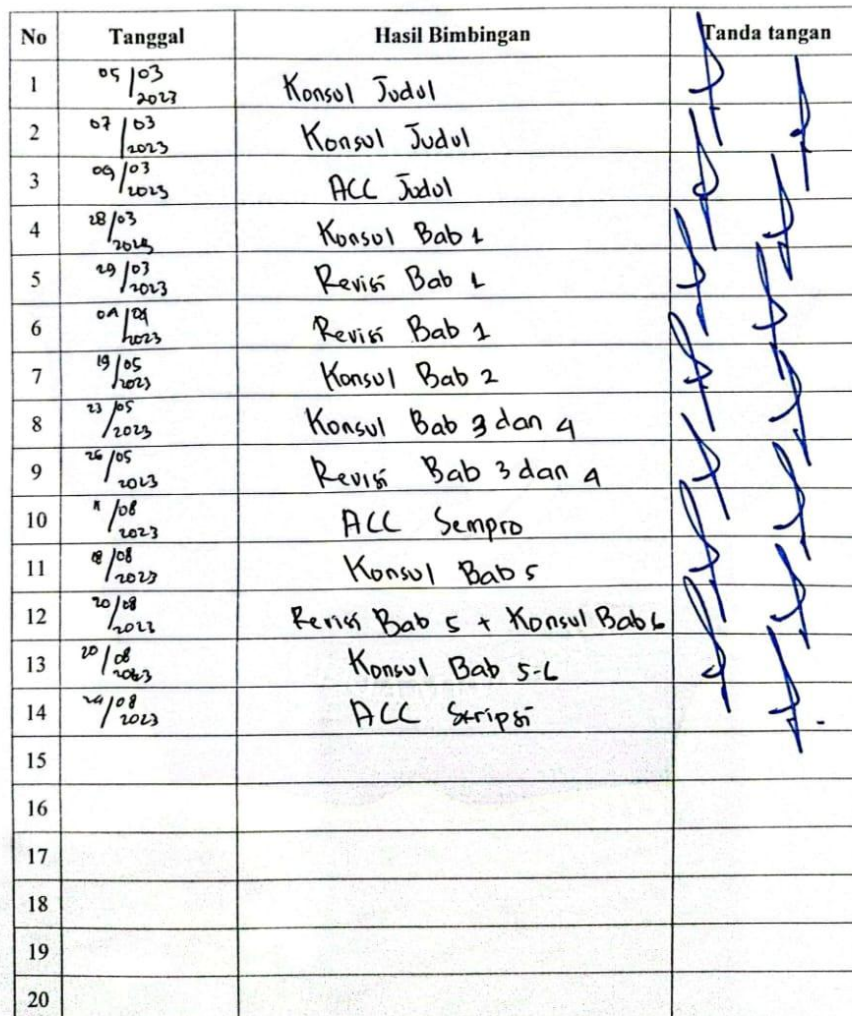 No Tanggal Hasil Bimbingan Tanda tangan
1 05/03 2023 Konsul Judul
2 07/03 2023 Konsul Judul
3 09/03 2023 ACC Judul
4 28/03 2023 Konsul Bab 1
5 29/03 2023 Revisi Bab 1
6 2023 Revisi Bab 1
7 19/05 2023 Konsul Bab 2
8 23/05 2023 Konsul Bab 3 dan 4
9 26/05 2023 Revisi Bab 3 dan 4
10 /08 2023 ACC Sempro
11 /08 2023 Konsul Bab 5
12 20/08 2023 Revisi Bab 5 + Konsul Bab 6
13 20/08 2023 Konsul Bab 5-6
14 24/08 2023 ACC Skripsi
15
16
17
18
19
20